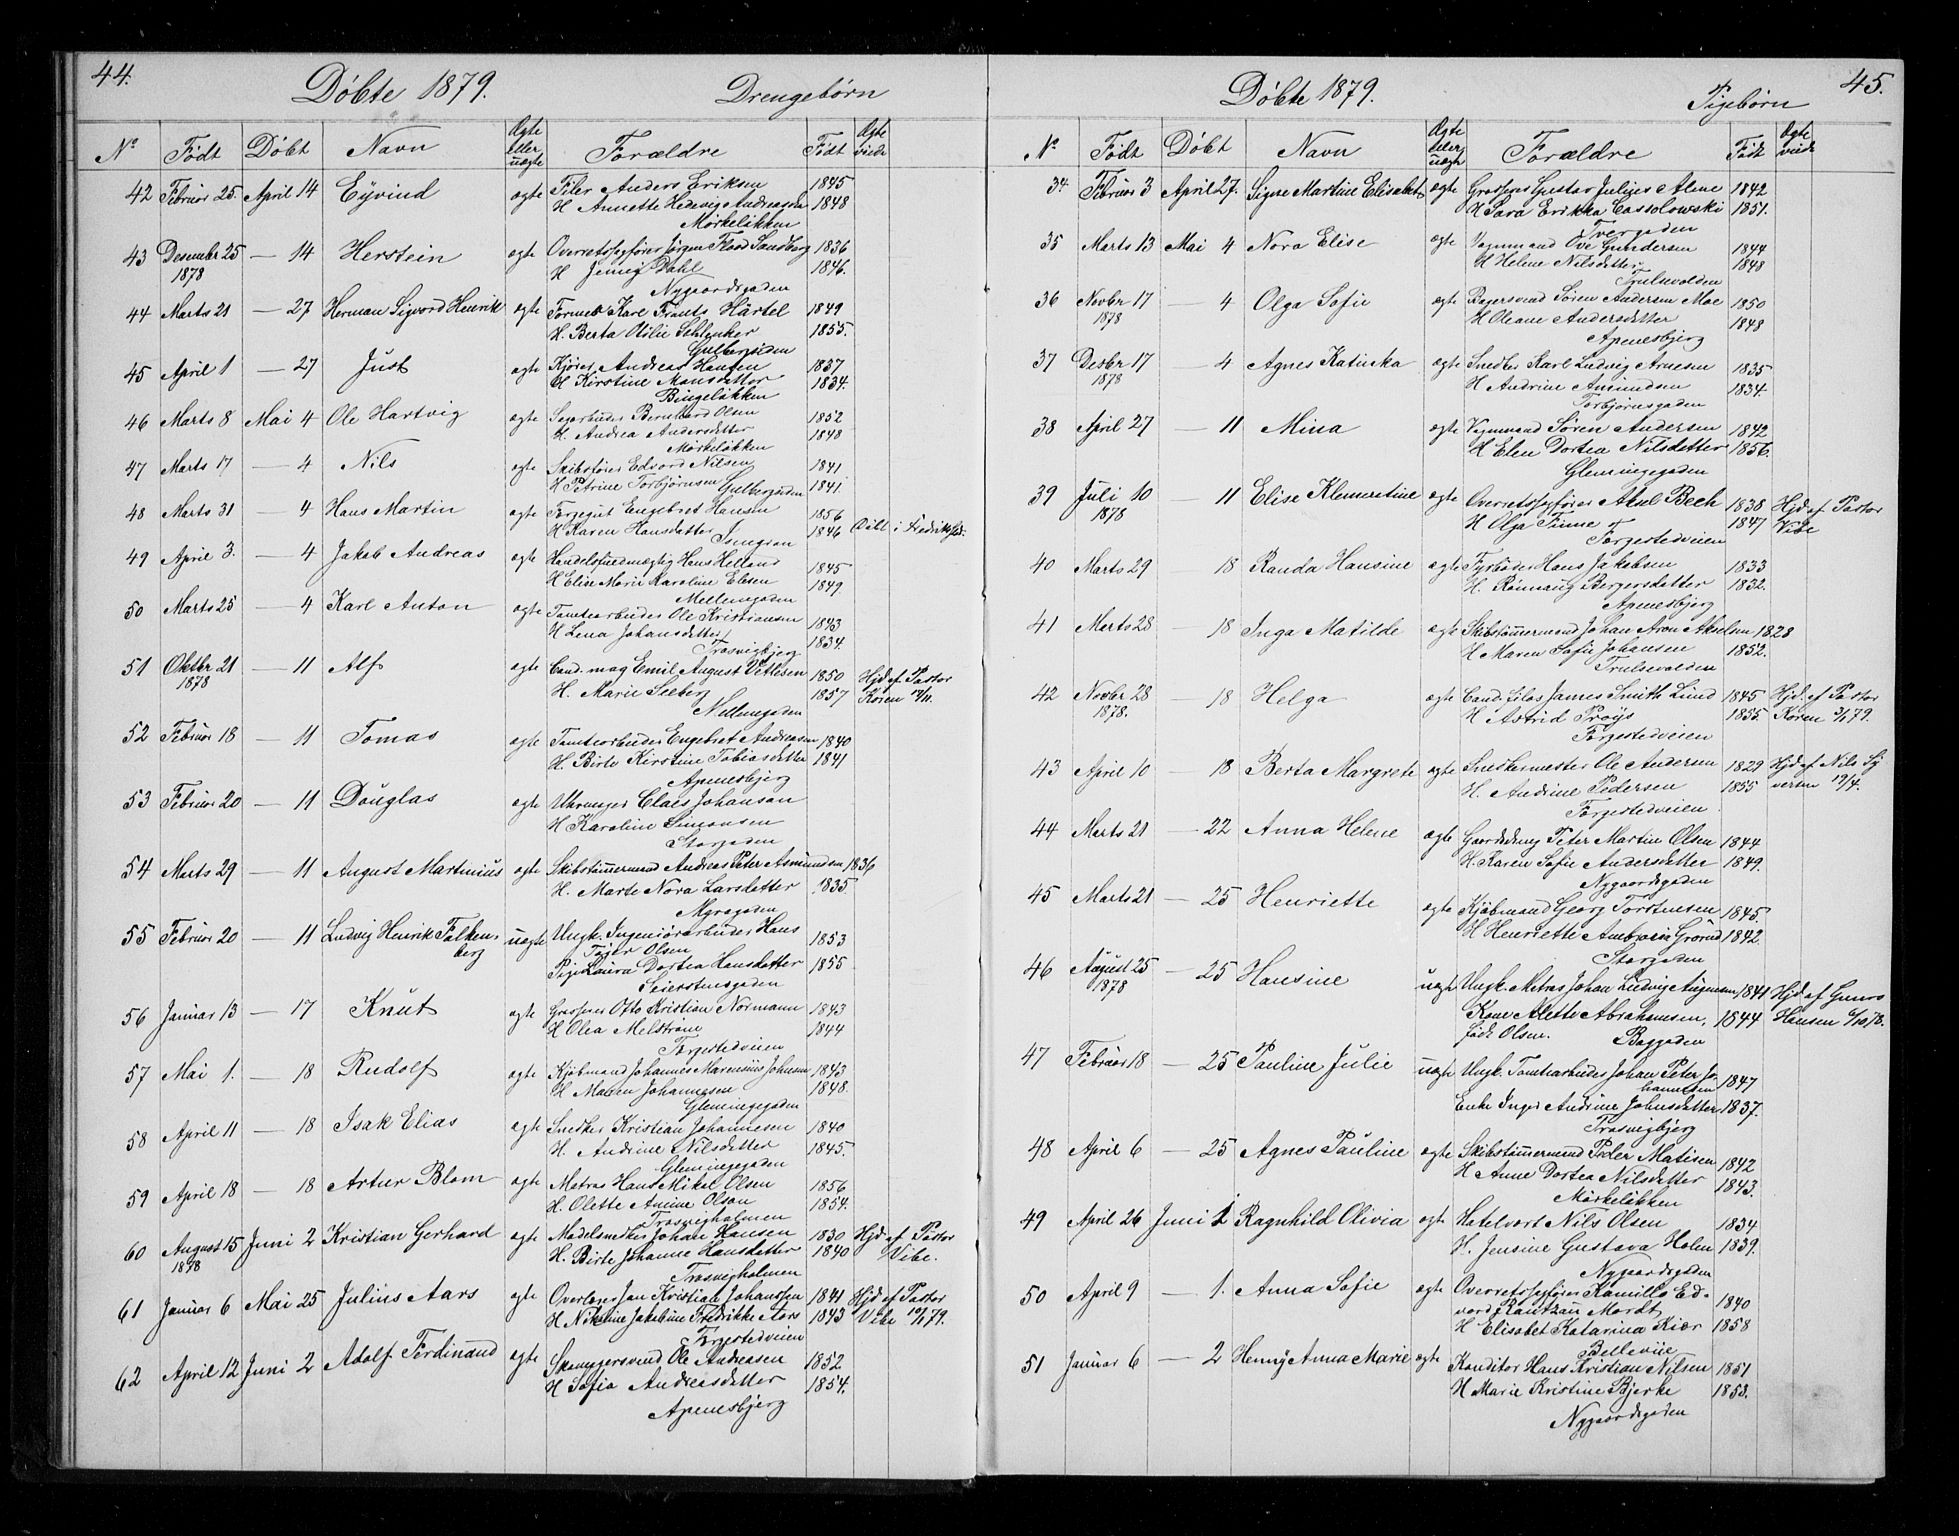 44.
Döbte 1879.
Drengebörn
No Födt Döbt Navn Ægte eller uægte Forældre Födt Ægte viede
42 Februar 25. April 14 Eyvind ægte Filer Anders Eriksen 1845
H Annette Hedevig Andreasen 1848
Mörkelökken
43 Desember 25 — 14 Herstein ægte Overretssagförer Jörgen Flood Sandberg 1836
1878 H Jenny Dahl 1846.
Nygaardsgaden
44 Marts 21 — 27 Herman Sigvard Henrik ægte Former Karl Frants Härtel 1849
H. Berta Otilie Schlenker 1855.
Gulbergsiden
45 April 1 — 27 Just ægte Kjörer Andreas Hansen 1837
H Kirstine Monsdatter 1834.
Bingelökken
46 Marts 8 Mai 4 Ole Hartvig ægte Sagarbeider Bernhard Olsen 1852
H. Andrea Andersdatter 1848
Mörkelökken
47 Marts 17 — 4 Nils ægte Skibsförer Edvard Nilsen 1841
H Petrine Torbjörnsen 1841.
Gulbergsiden
48 Marts 31 — 4 Hans Martin ægte Engebret Hansen 1856
H Karen Hansdatter 1846 Döbt i Fredrikshd.
49 April 3. — 4 Jakob Andreas ægte Handelsfuldmægtig Hans Helland 1845
H Elise Marie Karoline Elesen 1849.
Mellemgaden
50 Marts 25 — 4 Karl Anton ægte Tomtearbeider Ole Kristiansen 1843
H Lena Johansdatter 1834.
Trosvigbjerg
51 Oktbr 21 — 11 Alf ægte Cand. mag Emil August Vetlesen 1850 Hjd af Pastor
1878 H. Marie Seeberg 1857 Koren
Mellemgaden
52 Februar 18 — 11 Tomas ægte Tomtearbeider Engebret Andreasen 1840
H. Birte Kirstine Tobiasdatter 1841
Apenesbjerg
53 Februar 20 — 11 Douglas ægte Uhrmager Claes Johanson
H Karoline Simonsen
Storgaden
54 Marts 29 — 11 August Martinius ægte Skibstömmermand Andreas Peter Asmundsen 1836
H. Marte Nora Larsdatter 1835.
Myragaden
55 Februar 20 — 11 Ludvig Henrik Falken- uægte Ungk. Ingeniörarbeider Hans 1853
berg Töger Olsen
Pige Laura Dortea Hansdatter 1855
Seierstensgaden
56 Januar 13 — 17 Knut ægte Grosserer Otto Kristian Normann 1843
H Olea Melström 1844
Torgestedveien
57 Mai 1. — 18 Rudolf ægte Kjöbmand Johannes Marensius Johnsen 1843
H Maren Johannesen 1848.
Glemmegaden
58 April 11 — 18 Isak Elias ægte Snedker Kristian Johannesen 1840
H. Andrine Nilsdatter 1845.
Glemmegaden
59 April 18 — 18 Artur Blom ægte Matros Hans Mikal Olsen 1856
H. Olette Amine Olson 1854.
Trosvigholmen
60 August 15 Juni 2 Kristian Gerhard ægte Modelsnedker Johan Hansen 1830 Hjd af Pastor
1878 H. Birte Johanne Hansdatter 1840 Vibe.
Trosvigholmen
61 Januar 6 Mai 25 Julius Aars ægte Overlærer Jan Kristian Johanssen 1841 Hjd af Pastor
H Nikoline Jakobine Fredrikke Aars 1843 Vibe
Torgestedveien
62 April 12 Juni 2 Adolf Ferdinand ægte Ole Andreasen 1852
H Sofia Andreasdatter 1854.
Apenesbjerg
45.
Döbte 1879.
Pigebörn
No Födt Döbt Navn Ægte eller uægte Forældre Födt Ægte viede
34 Februar 3 April 27. Signe Martine Elisabet ægte Grosserer Gustav Julius Alme 1842
H Sara Erikka Cassolowski 1851.
Tvergaden
35 Marts 13 Mai 4 Nora Elise ægte Vognmand Ove Gundersen 1844
H Helene Nilsdatter 1848
Trulsevolden
36 Novbr 17 — 4 Olga Sofie ægte Bagersvend Sören Andersen Moe 1850
1878 H Oleane Andersdatter 1848
Apenesbjerg
37 Desbr 17 — 4 Agnes Katinka ægte Snedker Karl Ludvig Arnesen 1835
1878 H Andrine Amundsen 1834.
Torbjörnsgaden
38 April 27 — 11 Mina ægte Vognmand Sören Andersen 1842
H Elen Dortea Nilsdatter 1856.
Glemmegaden
39 Juli 10 — 11 Elise Klementine ægte Overretssagförer Aksel Bech 1838 Hjd af Pastor
1878 H Olga Thime 1847 Vibe
Torgestedveien
40 Marts 29 18 Randa Hansine ægte Fyrböder Hans Jakobsen 1833
H. Rönnaug Bergersdatter 1832.
Apenesbjerg
41 Marts 28 — 18 Inga Matilde ægte Skibstömmermand Johan Aron Akselsen 1828
H Maren Sofie Johansen 1852.
Trulsevolden
42 Novbr 28 — 18 Helga ægte Cand. filos James Smith Lund 1845 Hjd. af Pastor
1878. H Astrid Proÿs 1855. Koren 3/1 79.
Torgestedveien
43 April 10 — 18 Berta Margrete ægte Snedkermester Ole Andersen 1829 Hjd af Nils Sy
H. Andrine Pedersen 1855 vertsen 19/4.
Torgestedveien
44 Marts 21 — 22 Anna Helene ægte Peter Martin Olsen 1844
H. Karen Sofie Andersdatter 1849.
Nygaardsgaden
45 Marts 21 — 25 Henriette ægte Kjöbmand Georg Torstensen 1845.
H Henriette Ambrosia Grorud 1842.
Storgaden
46 August 25 — 25 Hansine uægte Ungk. Matros Johan Ludvig 1841 Hjd af Gunro
1878 Kone Alette Abrahamsen, 1844 Hansen 6/10 78.
födt Olsen. Baggaden
47 Februar 18 — 25 Pauline Julie uægte Ungk. Tomtearbeider Johan Peter Jo- 1847
hannesen
Enke Inger Andrine Johnsdatter 1837.
Trosvigbjerg
48 April 6 — 25 Agnes Pauline ægte Skibstömmermand Peder Matisen 1842
H Anne Dortea Nilsdatter 1843.
Mörkelökken
49 April 26 Juni 1 Ragnhild Olivia ægte Hotelvært Nils Olsen 1834
H. Jensine Gustava Holm 1839.
Nygaardsgaden
50 April 9 — 1. Anna Sofie ægte Overretssagförer Kamillo Ed- 1840
vard Rantzau Mordt
H Elisabet Katarina Kiær 1858
Bellevüe
51 Januar 6 — 2 Henny Anna Marie ægte Konditor Hans Kristian Nilsen 1851
H Marie Kristine Bjerke 1853.
Nygaardsgaden